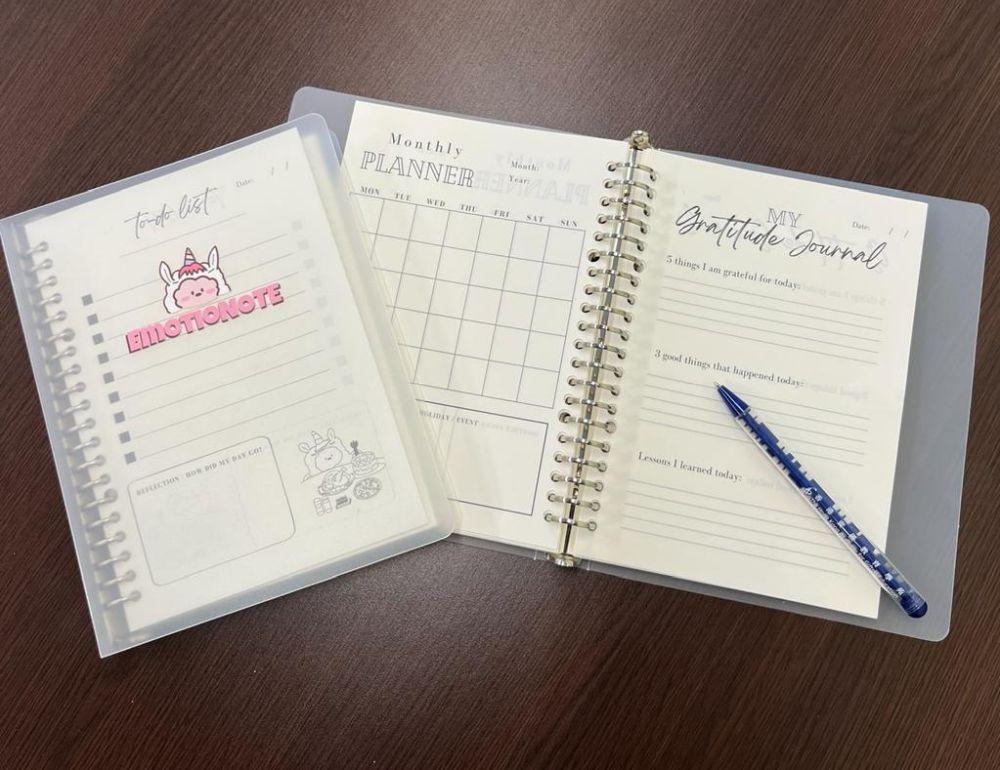 to-do list
Date: / /
EMOTIONOTE
REFLECTION HOW DID MY DAY GO?
Monthly
PLANNER
Month:
Year:
MON TUE WED THU FRI SAT SUN
HOLIDAY / EVENT
MY
Gratitude Journal
Date: / /
5 things I am grateful for today:
3 good things that happened today:
Lessons I learned today: